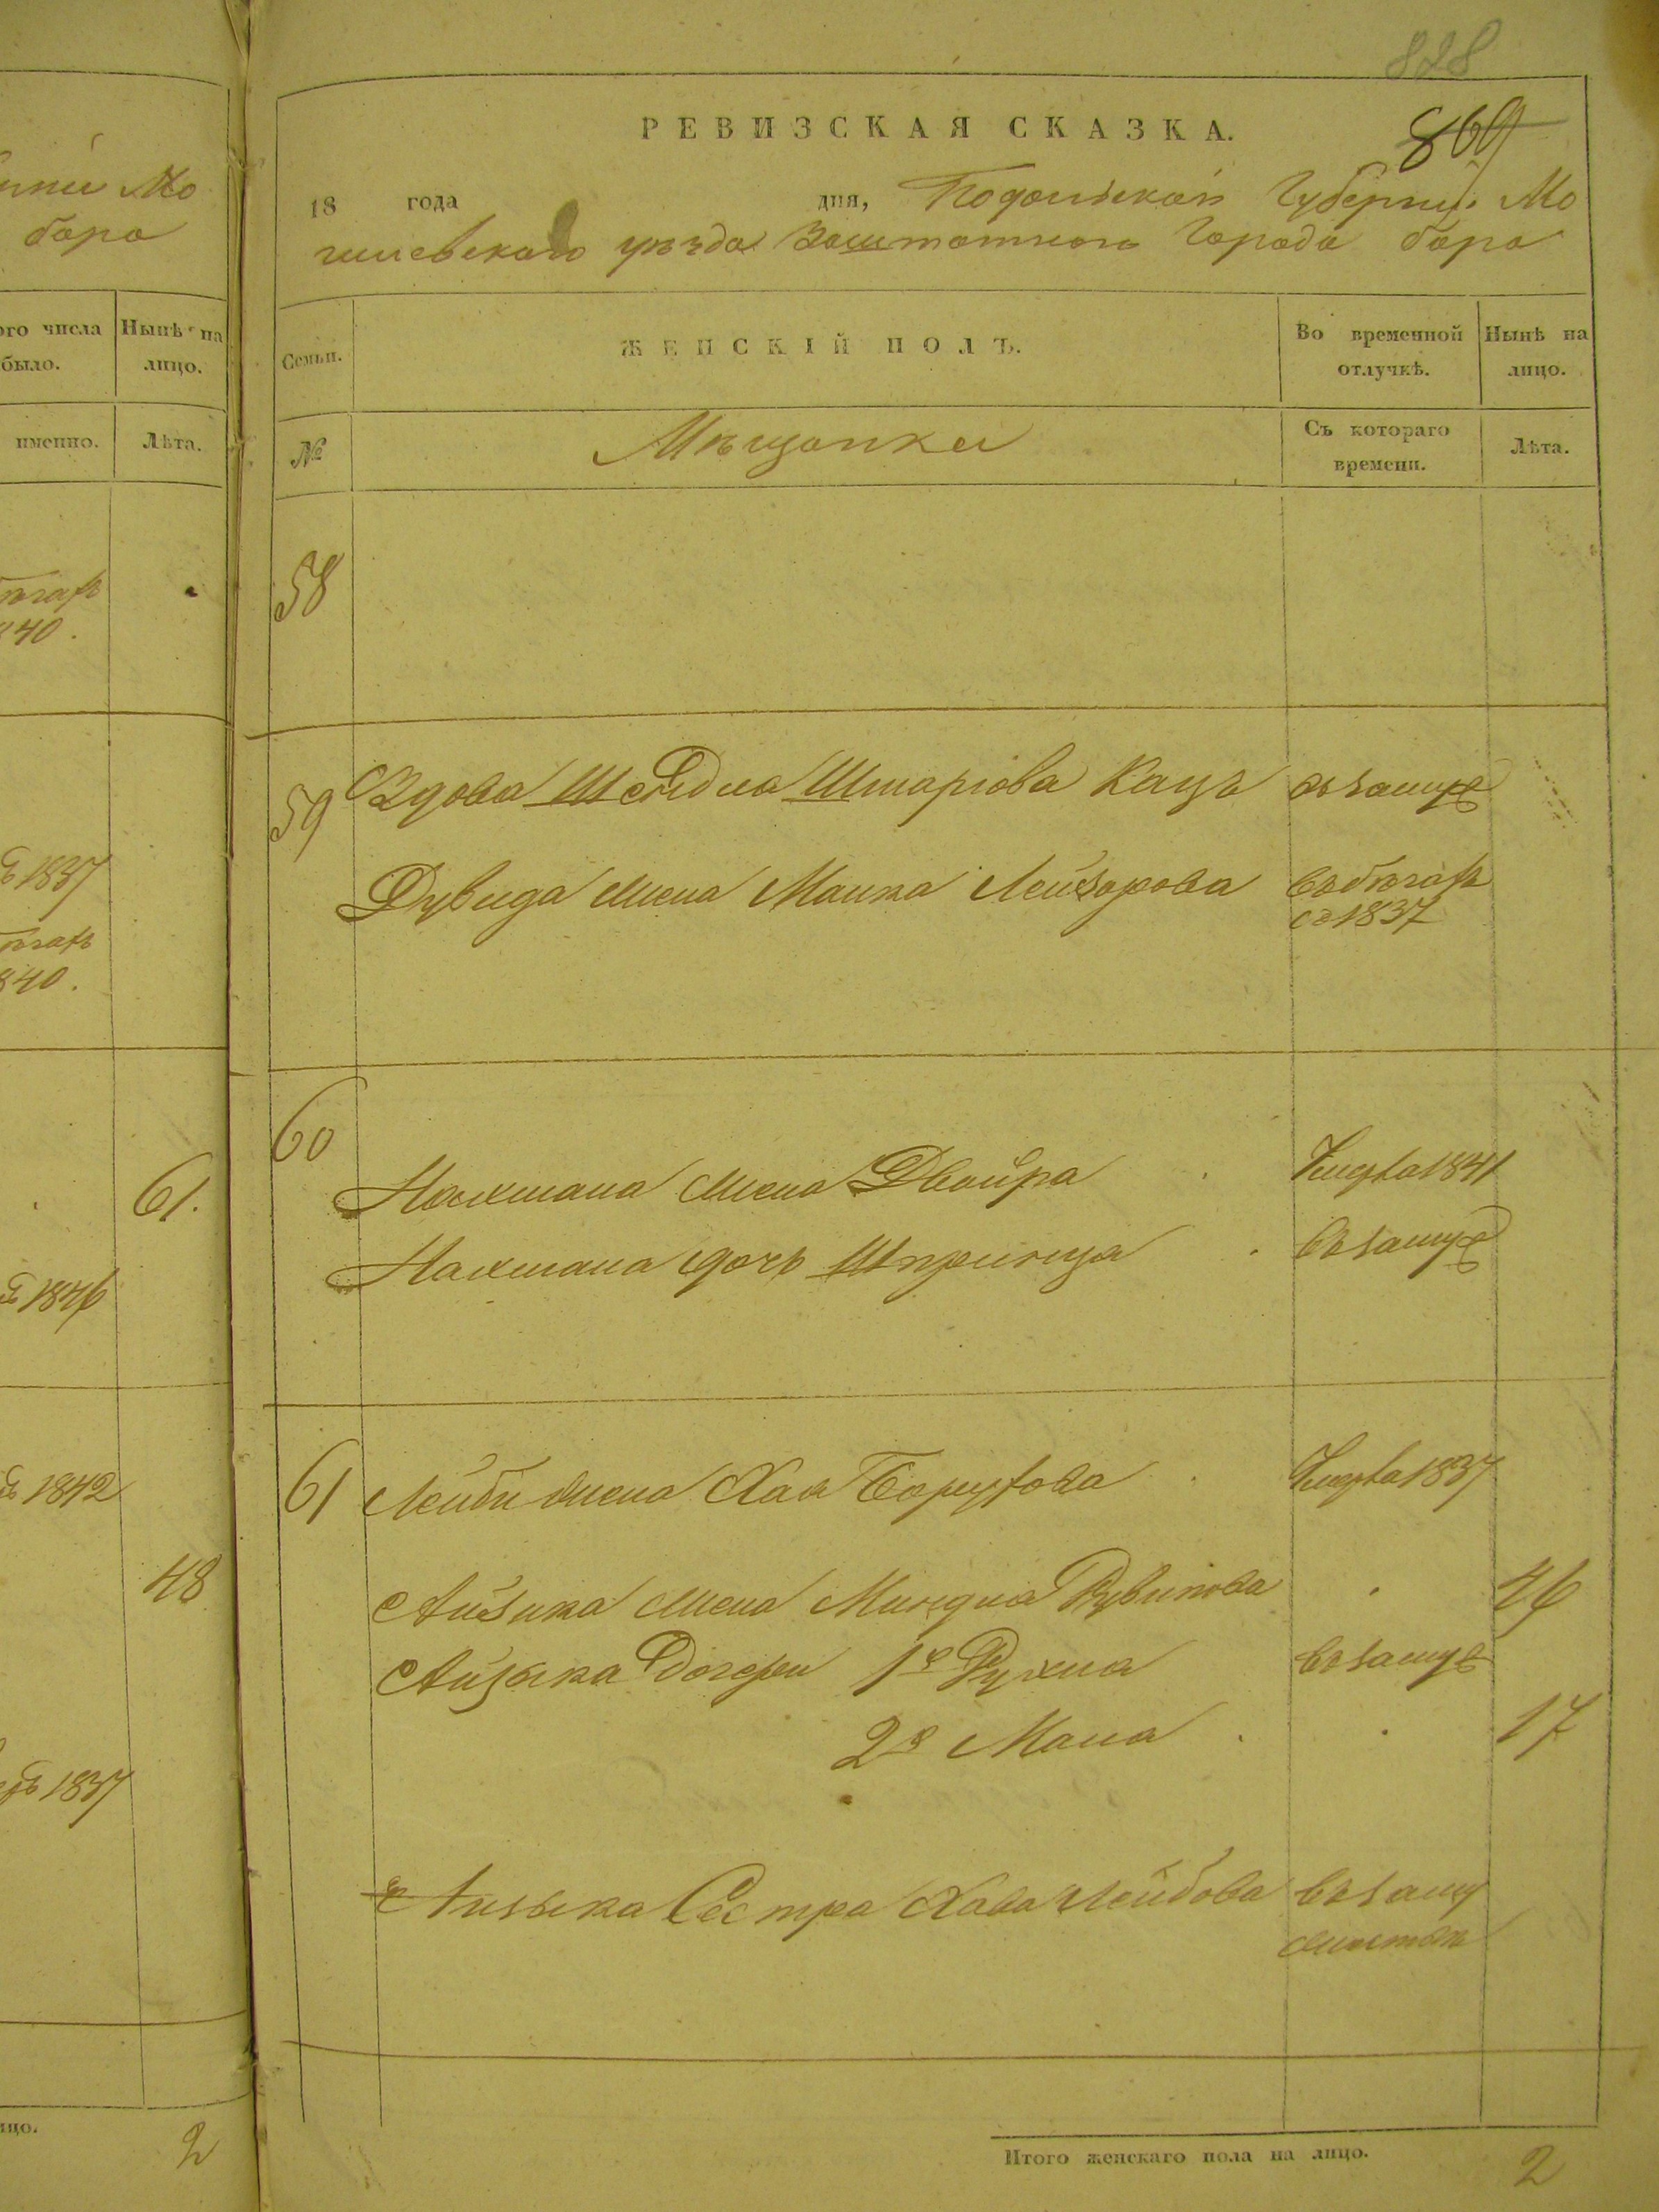 828
РЕВИЗСКАЯ СКАЗКА.
869
18 года дня, Подольской Губерніи Мо
гилевскаго уѣзда Заштатнаго Города бара
Семьи. ЖЕНСКІЙ ПОЛЪ. Во временной отлучкѣ. Нынѣ на лицо.
№ Мѣщанки Съ котораго времени. Лѣта.
58
59 Вдова Шейдла Кацъ въ замуж
Дувида жена Малка Лейзорова въ бѣгах
съ 1837
60
Нахмана жена Двойра умерла 1841
Нахмана дочь Шпринца въ замуж
61 Лейби жена Хая Борухова умерла 1837
Айзика жена Миндля Рувинова 46
Айзыка Дочери 1я Рухля въ замуж
2я Мана 17
Айзыка Сестра Хава Лейбова въ заму
жиством
Итого женскаго пола на лицо. 2
нии Мо
бара
ого числа было. Нынѣ на лицо.
именно. Лѣта.
бѣгах
840.
1837
бѣгах
840.
61.
1846
1842
48
1837
ицо. 2